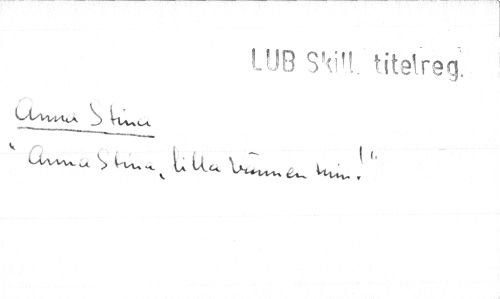 LUB Skill. titelreg.
Anna Stina
"Anna Stina, lilla vännen min!"